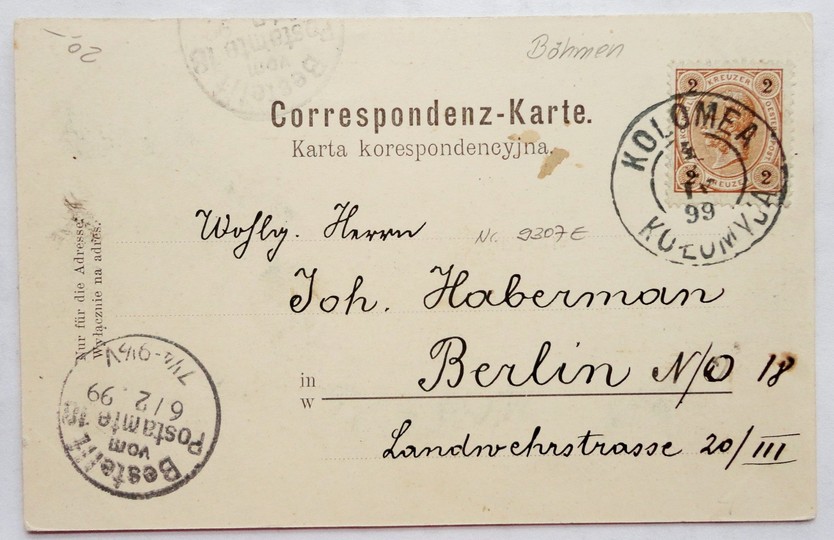 20,-
Böhmen
Bestellt
vom
Postamte 18
2 KREUZER 2
2 KREUZER 2
KOLOMEA
99
KOŁOMYJA
Correspondenz-Karte.
Karta korespondencyjna.
Nur für die Adresse.
Wyłącznie na adres.
Wohlg. Herrn
Nr. 9307E
Joh. Haberman
in Berlin N/O 18
w
Landwehrstrasse 20/III
Bestellt
vom
Postamte 18
6/2.99
7¼-9½V